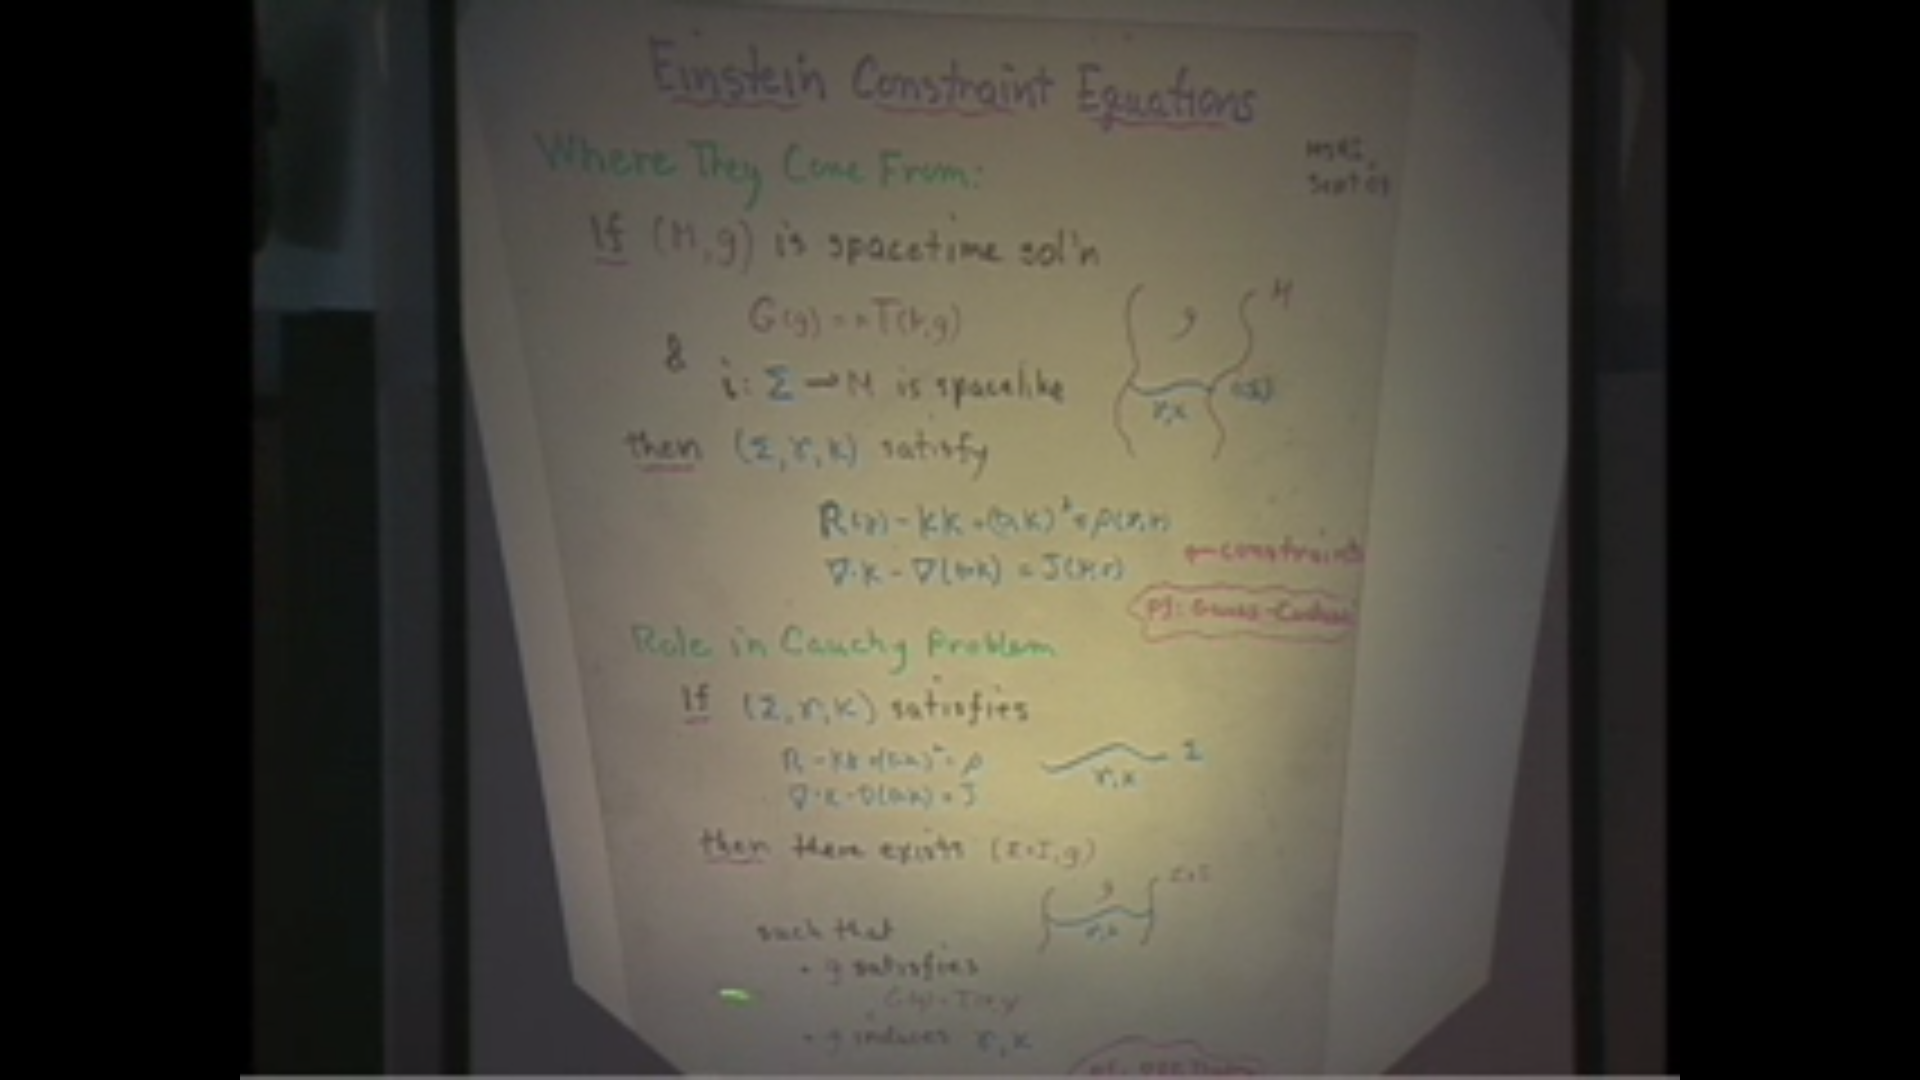 Einstein Constraint Equations
Where They Come From:
MSRI,
If (M,g) is spacetime sol'n
G(g) = κT(ψ,g)
M
g
& i: Σ → M is spacelike
γ,K
then (Σ,γ,K) satisfy
R(γ) - KK + (trK)² = ρ(ψ,γ)
←constraints
∇·K - ∇(trK) = J(ψ,γ)
pf: Gauss-Codazzi
Role in Cauchy Problem
If (Σ,γ,K) satisfies
R - KK + (trK)² = ρ
Σ
∇·K - ∇(trK) = J
γ,K
then there exists (Σ×I,g)
Σ×I
g
γ,K
such that
• g satisfies
G(g) = T(ψ,g)
• g induces γ,K